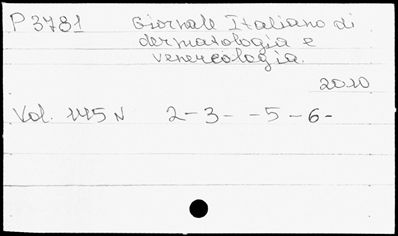 P 3781 Giornale Italiano di
dermatologia e
venereologia.
2010
Vol. 145 N 2-3- -5-6-